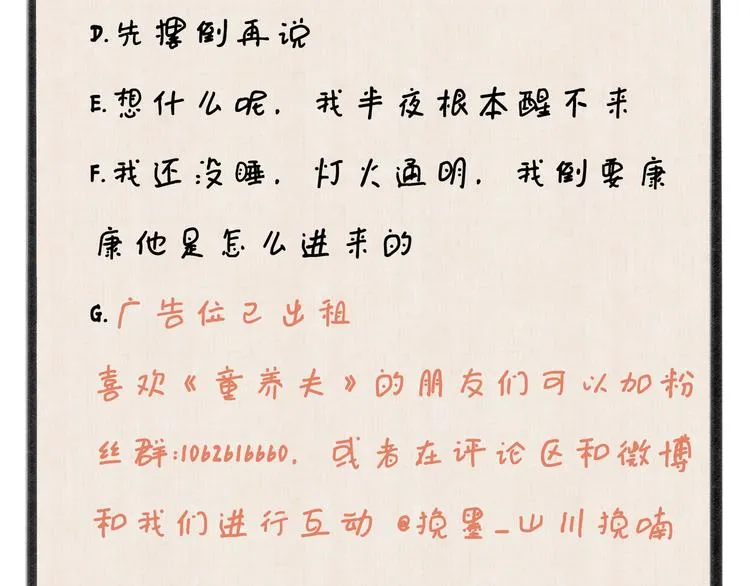 D.先撂倒再说
E.想什么呢，我半夜根本醒不来
F.我还没睡，灯火通明，我倒要康
康他是怎么进来的
G.广告位已出租
喜欢《童养夫》的朋友们可以加粉
丝群:1062616660，或者在评论区和微博
和我们进行互动@挽墨_山川挽喃